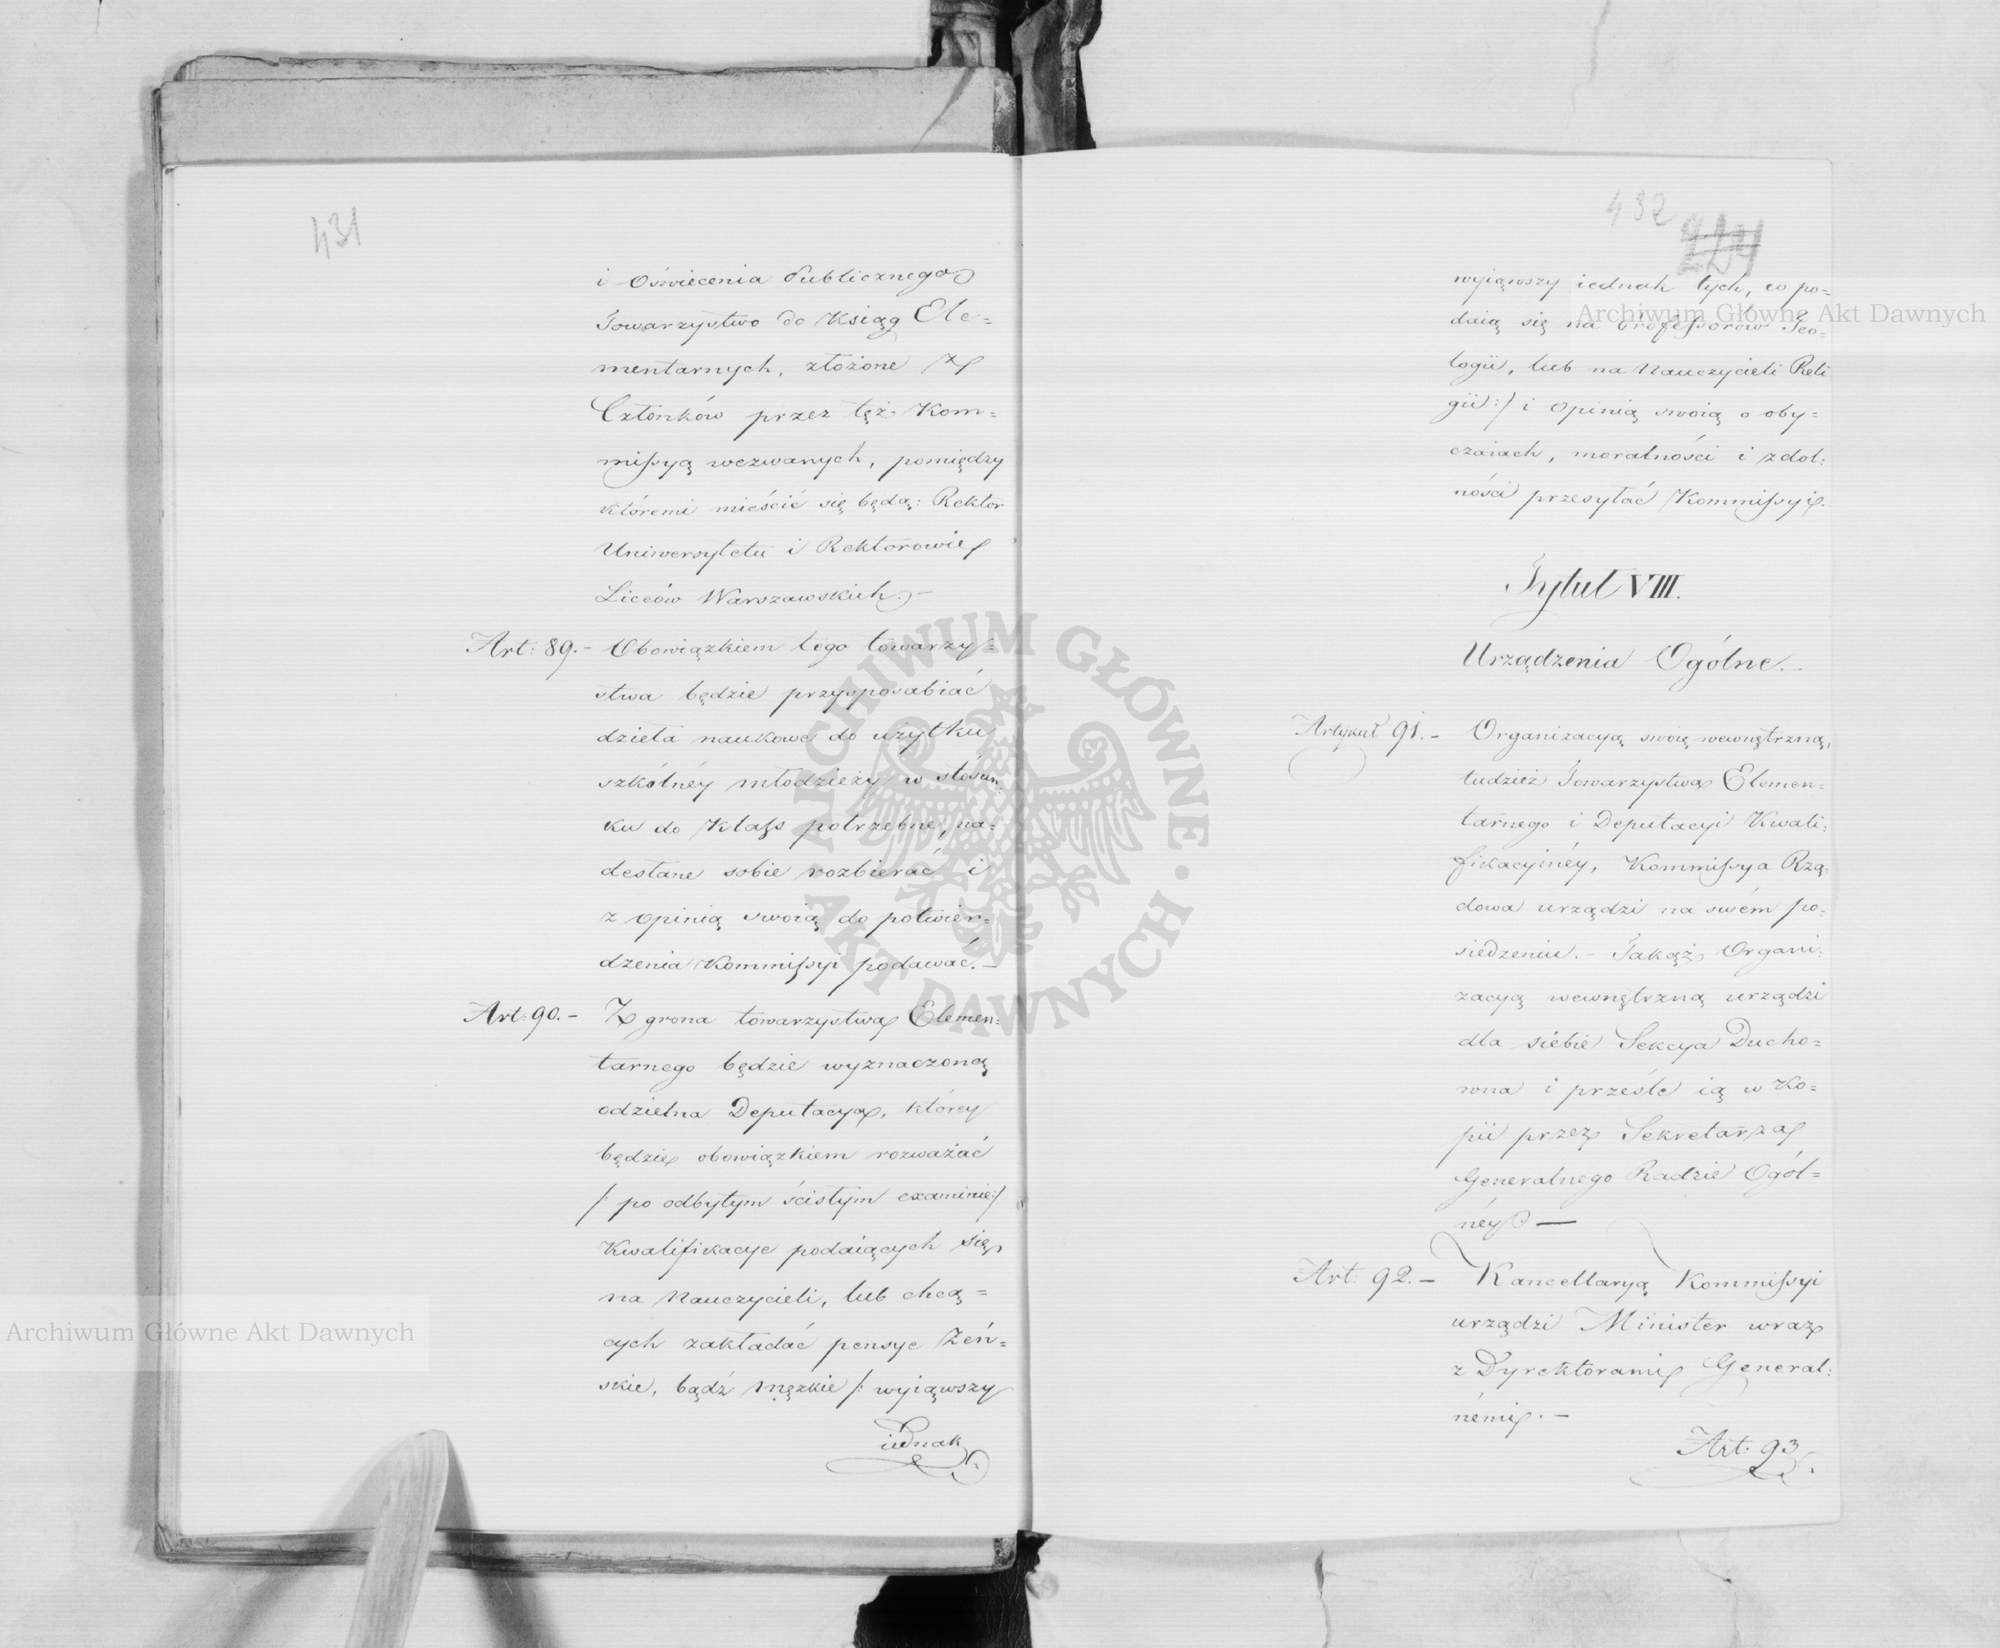 431
i Oświecenia Publicznego
Towarzystwo do Ksiąg Ele=
mentarnych, złożone z
Członków przez tęż Kom=
missyą wezwanych, pomiędzy
któremi mieścić się będą: Rektor
Uniwersytetu i Rektorowie
Liceów Warszawskich.-
Art: 89.- Obowiązkiem tego towarzy=
stwa będzie przysposabiać
dzieła naukowe do użytku
szkólnéy młodzieży w stósun=
ku do Klass potrzebne, na=
desłane sobie rozbierać i
z opinią swoią do potwier=
dzenia Kommissyi podawać.-
Art: 90.- Z grona towarzystwa Elemen=
tarnego będzie wyznaczoną
odzielna Deputacya, którey
będzie obowiązkiem rozważać
/: po odbytym ścisłym examinie:/
Kwalifikacye podaiących się
na Nauczycieli, lub chcą=
cych zakładać pensye Żeń=
skie, bądź męzkie /: wyiąwszy
iednak
432
224
wyiąwszy iednak tych, co po=
daią się na Professorów Teo=
logii, lub na Nauczycieli Reli
gii:/ i opinią swoią o oby=
czaiach, moralności i zdol=
ności przesyłać Kommissyi.
Tytuł VIII.
Urządzenia Ogólne.-
Artykuł 91.- Organizacyą swoię wewnętrzną,
tudzież Towarzystwa Elemen=
tarnego i Deputacyi Kwali=
fikacyinéy, Kommissya Rzą=
dowa urządzi na swém po=
siedzeniu.- Takąż Organi=
zacyą wewnętrzną urządzi
dla siebie Sekcya Ducho=
wna i prześle ią w Ko=
pii przez Sekretarza
Generalnego Radzie Ogól=
néy.-
Art: 92.- Kancellaryą Kommissyi
urządzi Minister wraz
z Dyrektorami General=
némi.-
Art: 93.
Archiwum Główne Akt Dawnych
Archiwum Główne Akt Dawnych
ARCHIWUM GŁÓWNE · AKT DAWNYCH ·